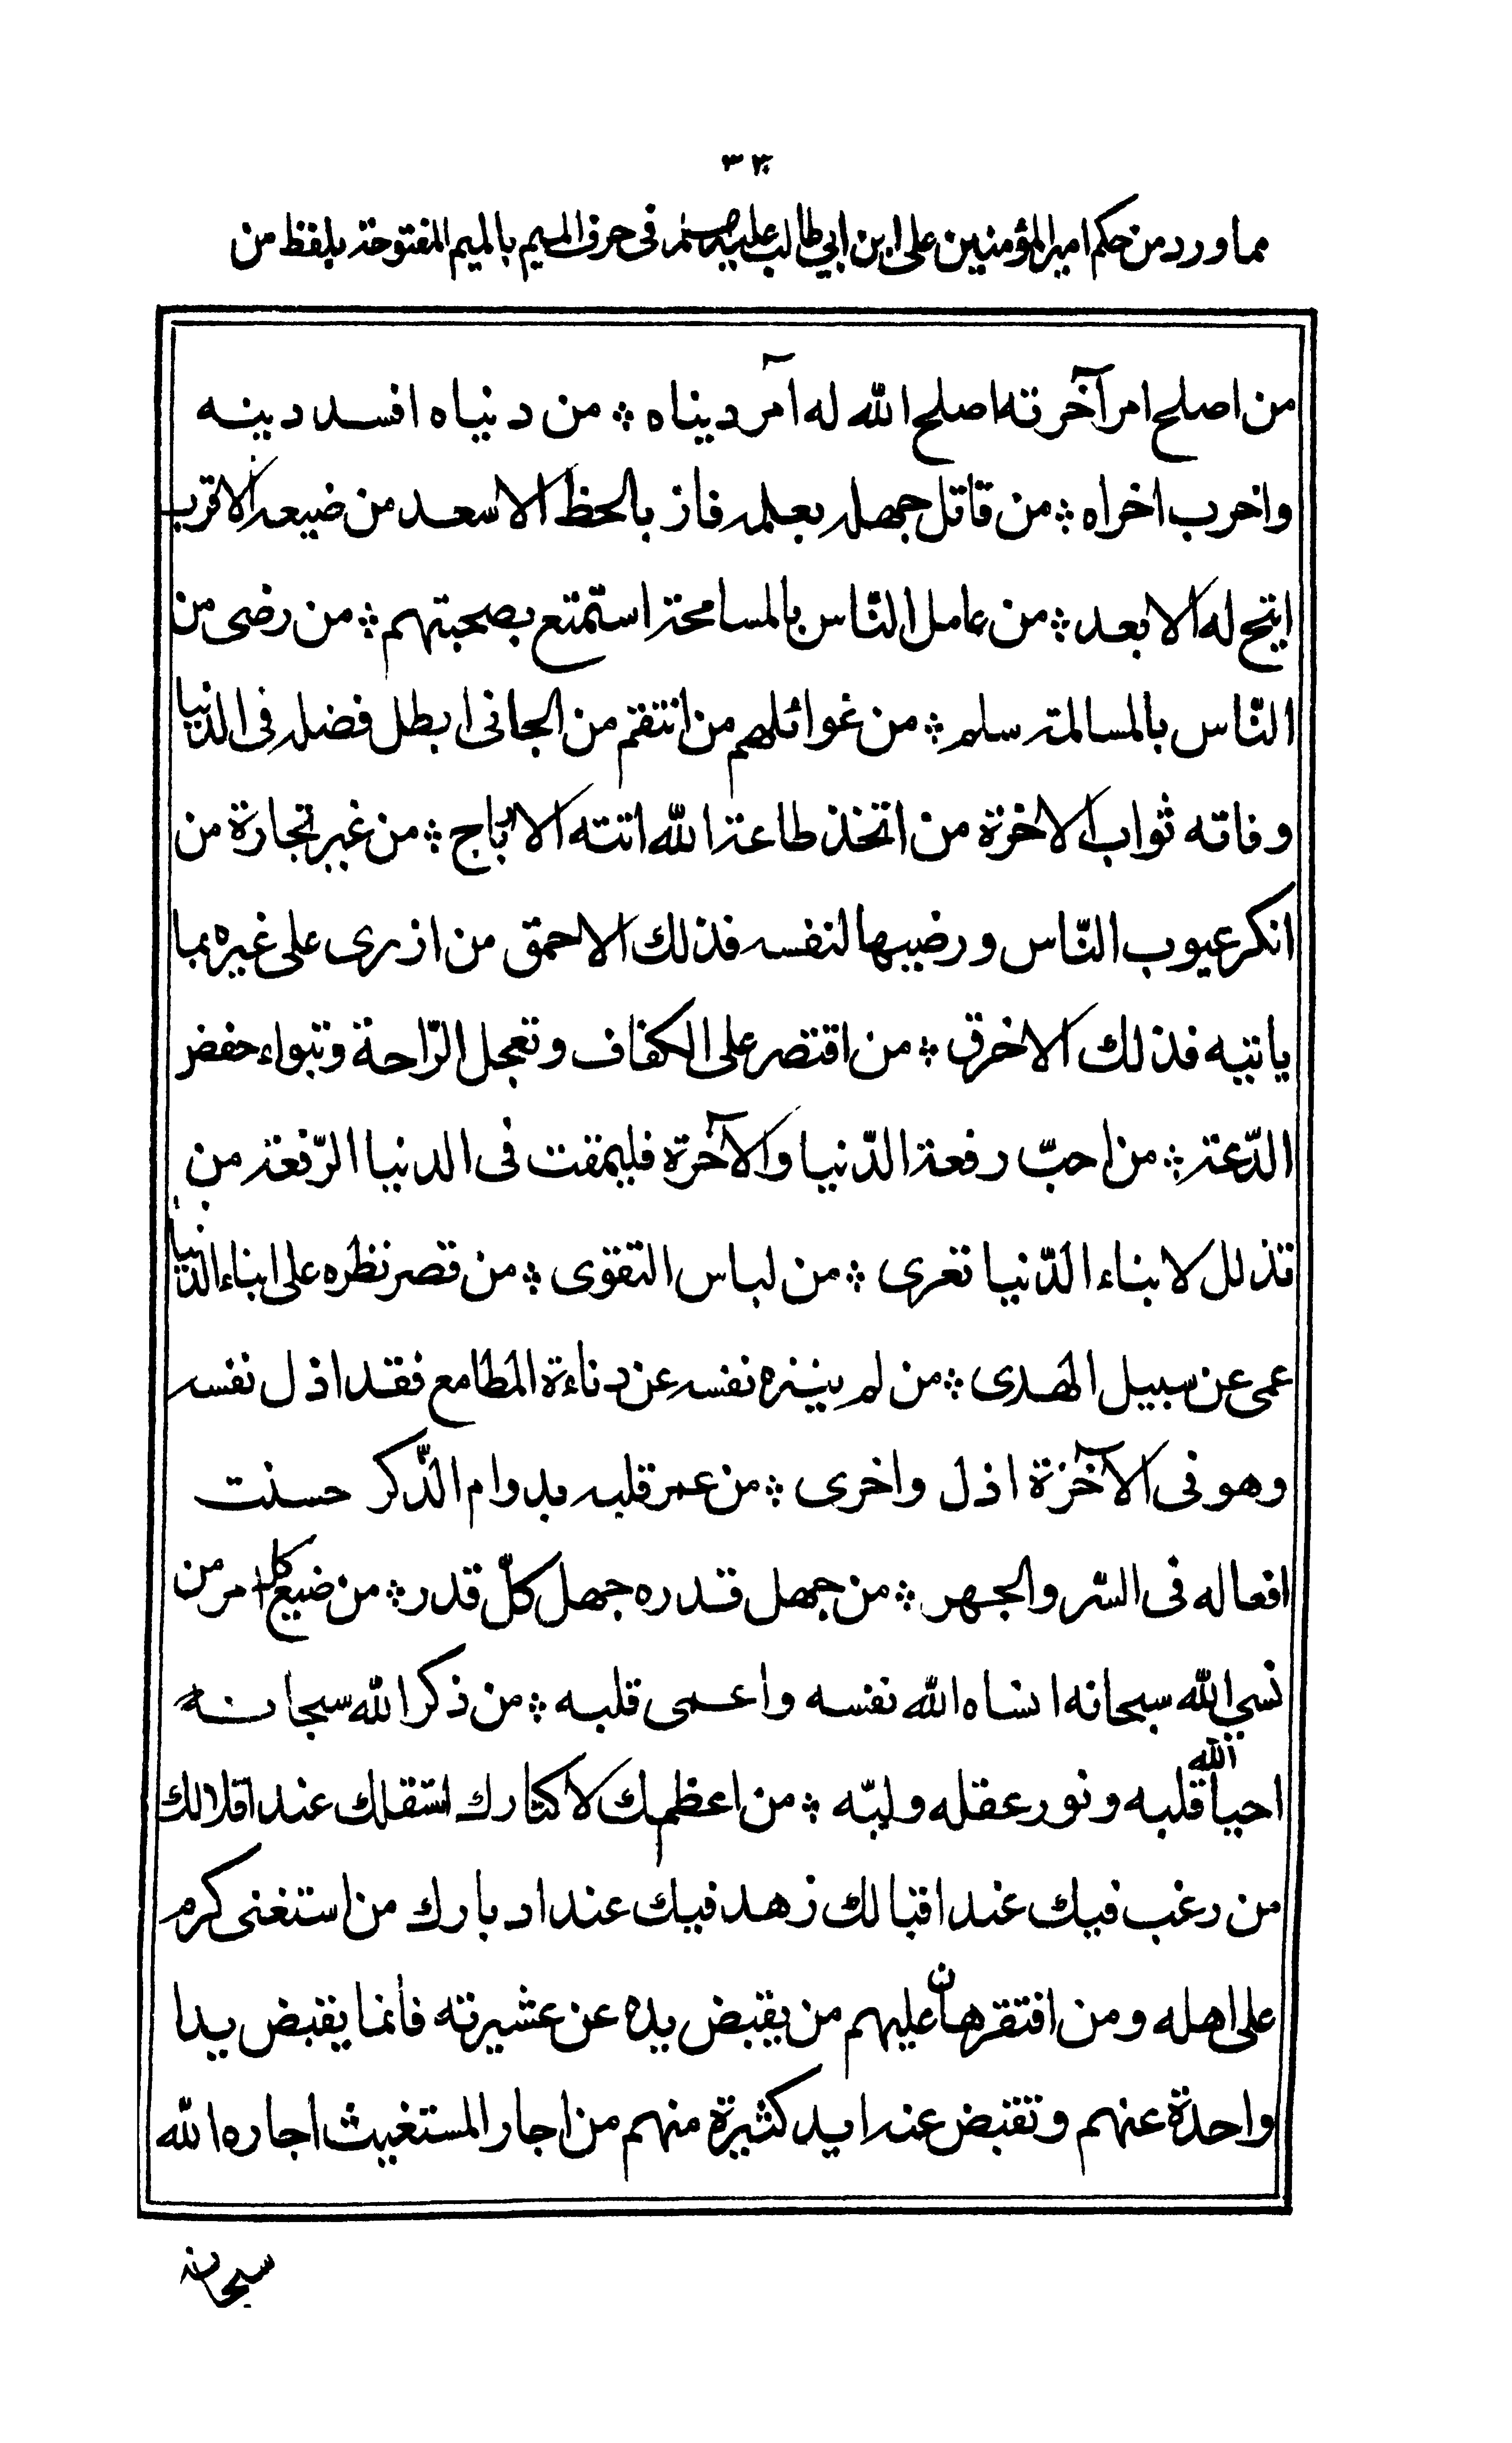 مما ورد من حكم امير المؤمنين على ابن ابي طالب عليه فى حرف الميم بالميم المفتوحة بلفظ من
من اصلح امر آخرته اصلح الله له امر ديناه ؞ من دنياه افسد دينه
واخرب اخراه ؞ من قاتل جهله بعلمه فاز بالحظ الاسعد من ضيعه الاقرب
اتيح له الابعد ؞ من عامل النّاس بالمسامحة استمتع بصحبتهم ؞ من رضى من
النّاس بالمسالمة سلم ؞ من غوائلهم من انتقم من الجانى ابطل فضله فى الدنيا
وفاته ثواب الاخرة من اتخذ طاعة الله اتته الارباح ؞ من غير تجارة من
انكر عيوب النّاس ورضيها لنفسه فذلك الاحمق من ازرى على غيره بما
ياتيه فذلك الاخرق ؞ من اقتصر على الكفاف وتعجل الرّاحة وتبواء خفض
الدّعة ؞ من احبّ رفعة الدّنيا والآخرة فليمقت فى الدنيا الرّفعة من
تذلل لابناء الدّنيا تعرى ؞ من لباس التقوى ؞ من قصر نظره على ابناء الدّنيا
عمى عن سبيل الهدى ؞ من لم ينزه نفسه عن دناءة المطامع فقد اذل نفسه
وهو فى الآخرة اذل واخرى ؞ من عمر قلبه بدوام الذّكر حسنت
افعاله فى السّر والجهر ؞ من جهل قدره جهل كلّ قدر ؞ من ضيع كل امر من
نسي الله سبحانه انساه الله نفسه واعمى قلبه ؞ من ذكر الله سبحانه
احيا الله قلبه ونور عقله ولبّه ؞ من اعظمك لاكثارك استقلك عند اقلالك
من رغب فيك عند اقبالك زهد فيك عند ادبارك من استغنى كرم
على اهله ومن افتقر هان عليهم من يقبض يده عن عشيرته فانما يقبض يدا
واحدة عنهم وتقبض عنه ايد كثيرة منهم من اجار المستغيث اجاره الله
سبحانه